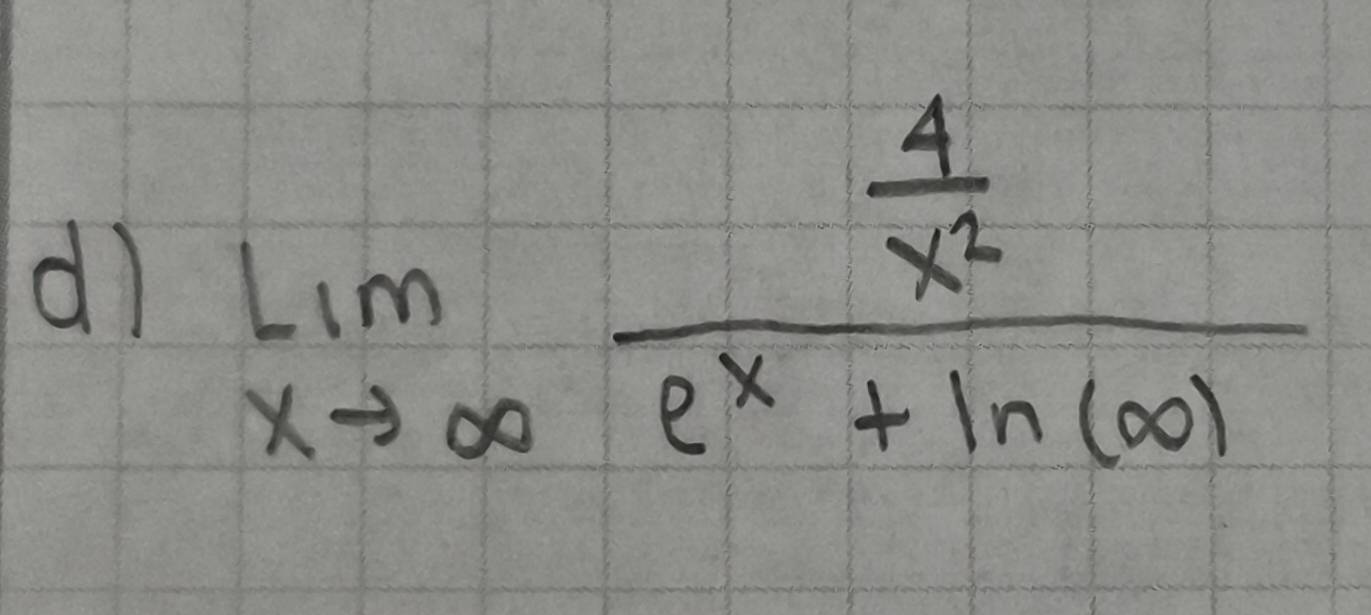 d) Lim x→∞ (4/x²)/(eˣ + ln(∞))